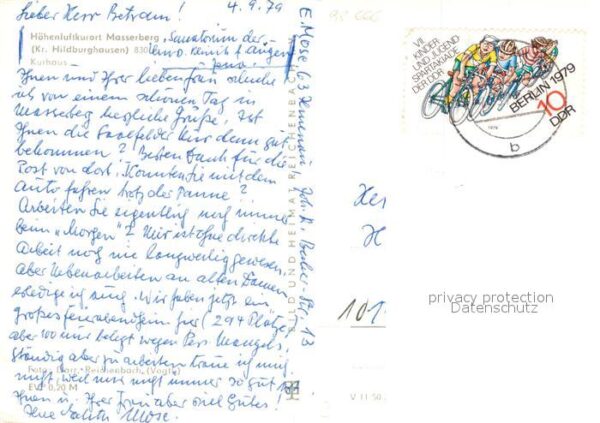 Lieber Herr Betram! 4.9.79
Höhenluftkurort Masserberg
(Kr. Hildburghausen) 830
Kurhaus
"Sanatorium der
Univ. Klinik f. Augen
Jena.
Ihnen und Ihrer lieben Frau schicke
ich von einem schönen Tag in
Masserberg herzliche Grüße. Ist
Ihnen die Saalfelder Kur denn gut
bekommen? Besten Dank für die
Post von dort. Konnten Sie mit dem
Auto fahren trotz der Panne?
Arbeiten Sie eigentlich noch immer
beim "Morgen"? Mir ist ohne direkte
Arbeit noch nie langweilig gewesen,
aber Nebenarbeiten an alten Damen
erledige ich ung. Wir haben jetzt ein
großes Feierabendheim hier (294 Plätze,
aber 100 nur belegt wegen Pers. Mangels,
ständig aber zu arbeiten traue ich mich
nicht, weil mir nicht immer so gut ist
Ihnen u. Ihrer Frau aber viel Gutes!
Ihre Edith Mose.
Foto: Darr, Reichenbach (Vogtl)
EVP 0,20 M
E. Mose 63 Ilmenau, Joh. R. Becher-Str. 13
BILD UND HEIMAT REICHENBACH
VII.
KINDER-
UND JUGEND
SPARTAKIADE
DER DDR
BERLIN 1979
10
DDR
1979
b
He
H
101
V 11 50
privacy protection
Datenschutz